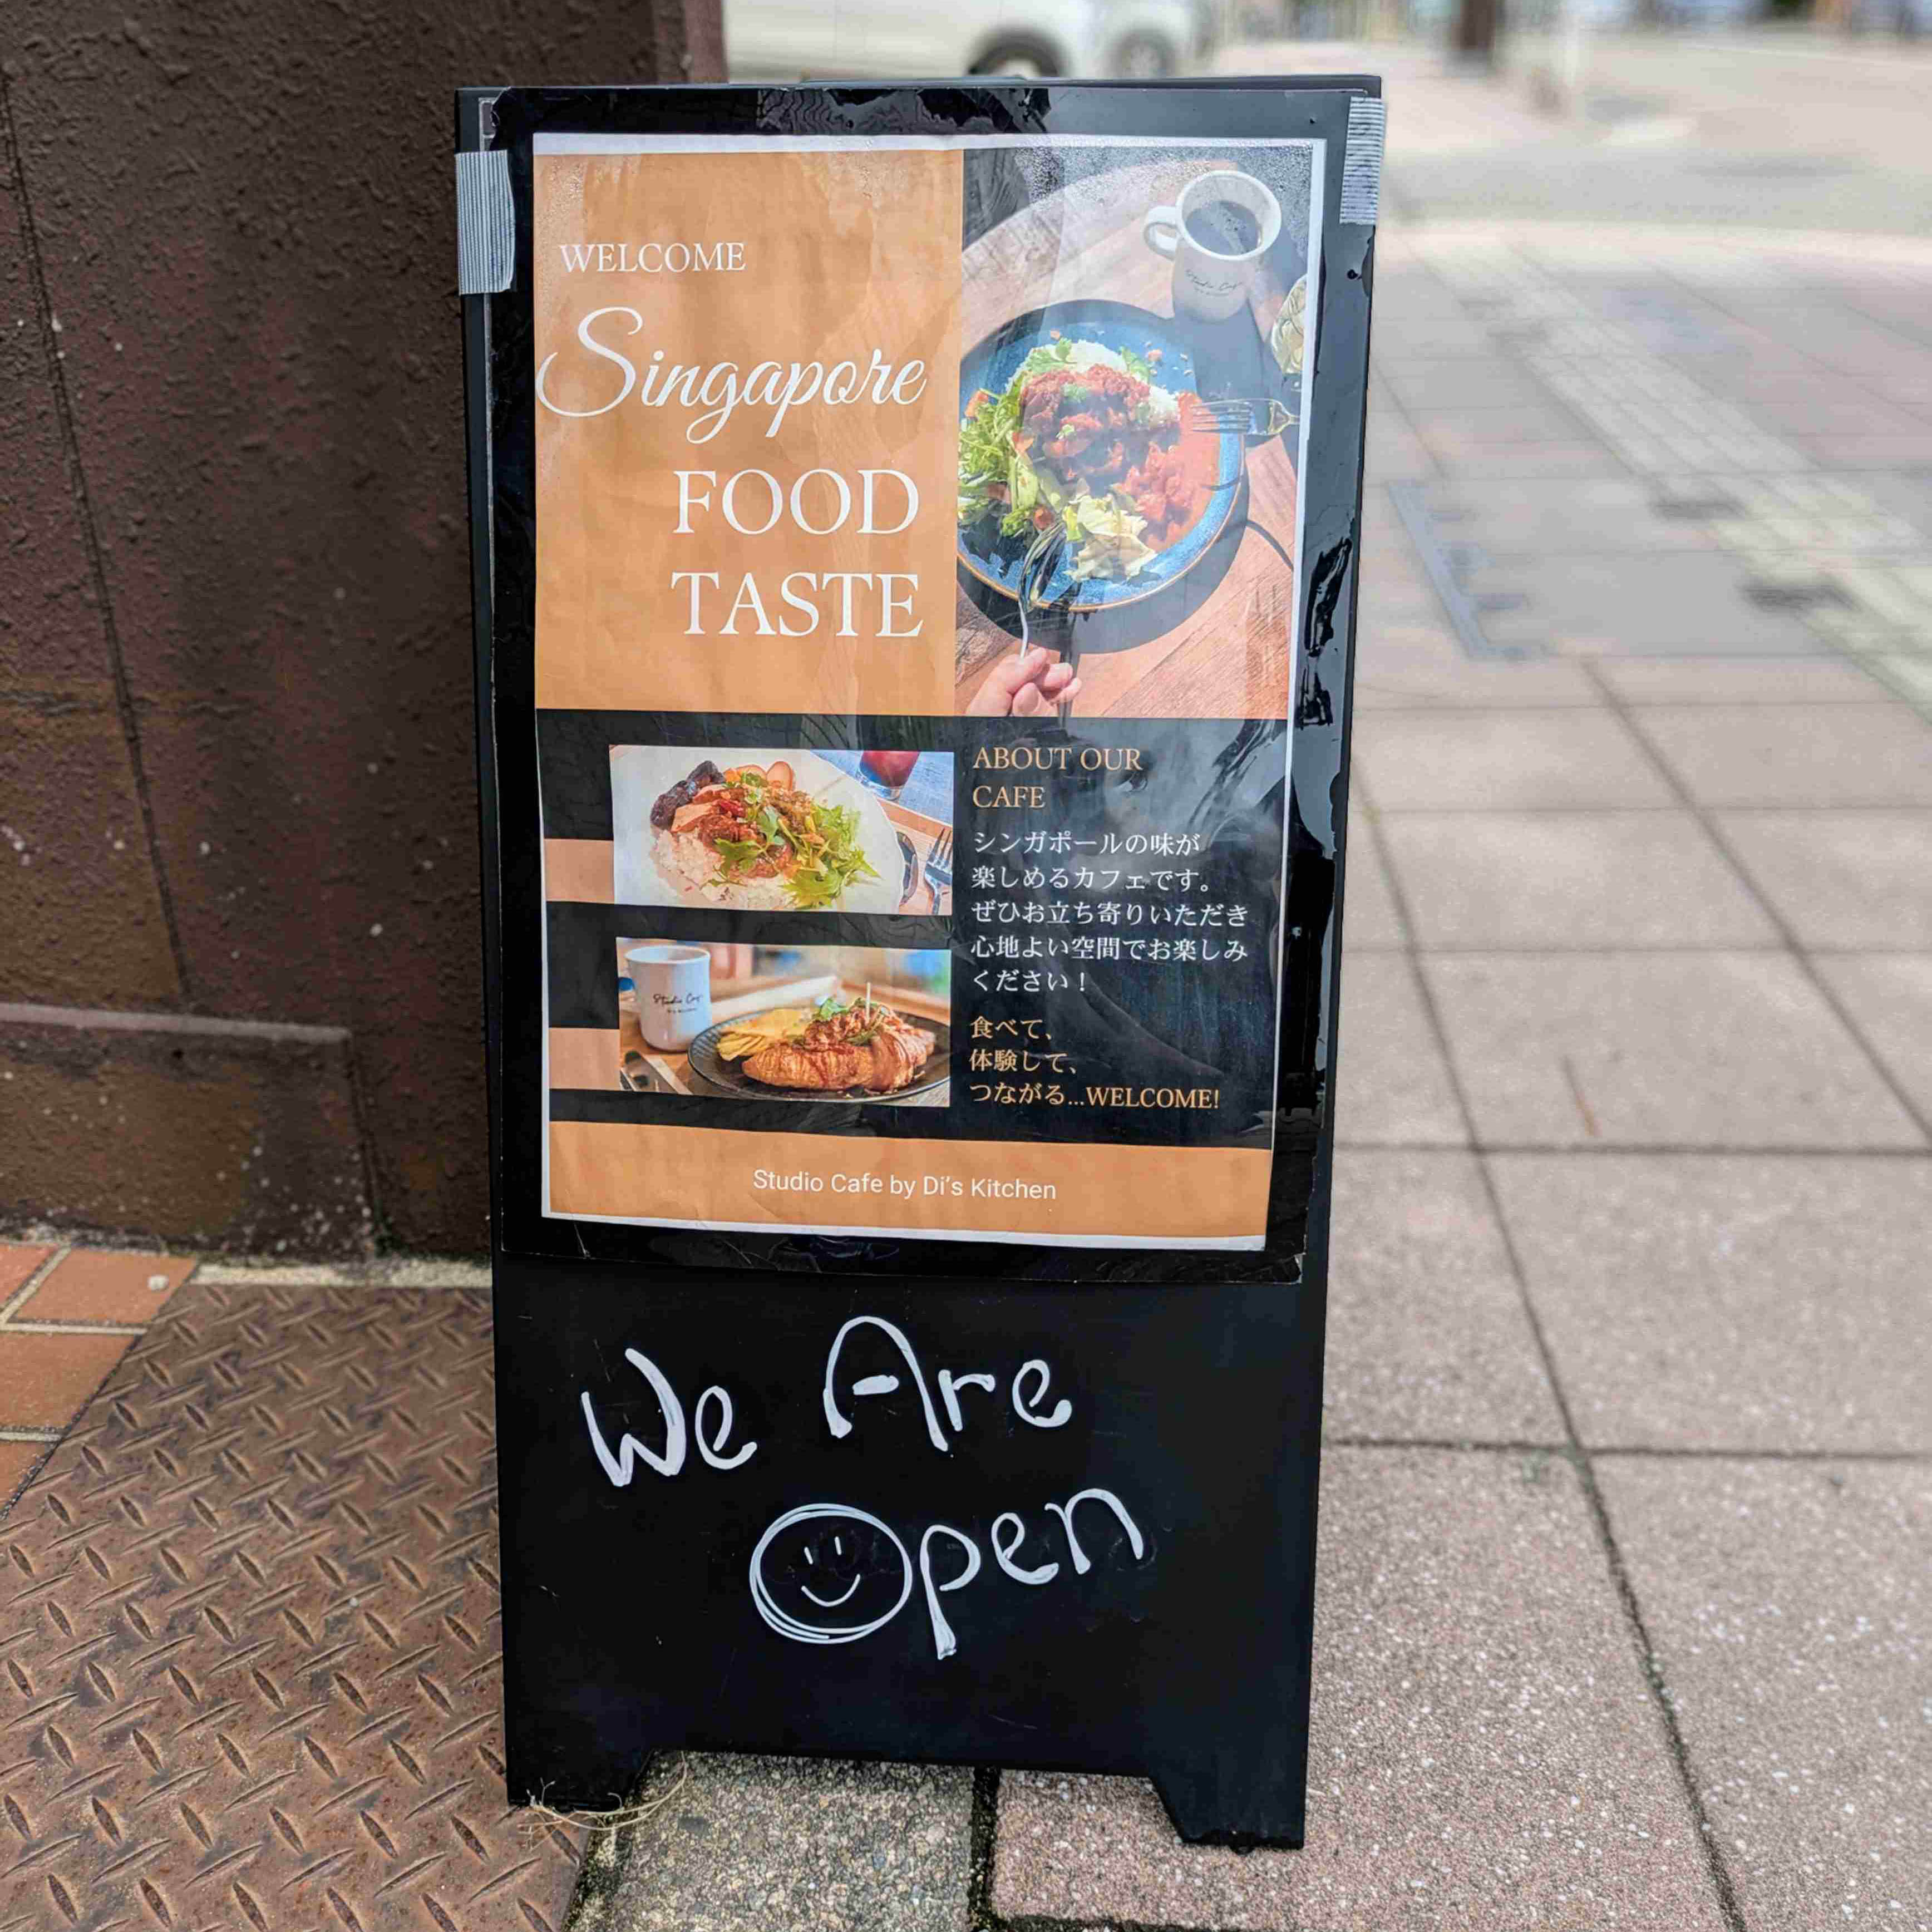 WELCOME
Singapore
FOOD
TASTE
ABOUT OUR
CAFE
シンガポールの味が
楽しめるカフェです。
ぜひお立ち寄りいただき
心地よい空間でお楽しみ
ください！
食べて、
体験して、
つながる...WELCOME!
Studio Cafe by Di's Kitchen
We Are
Open